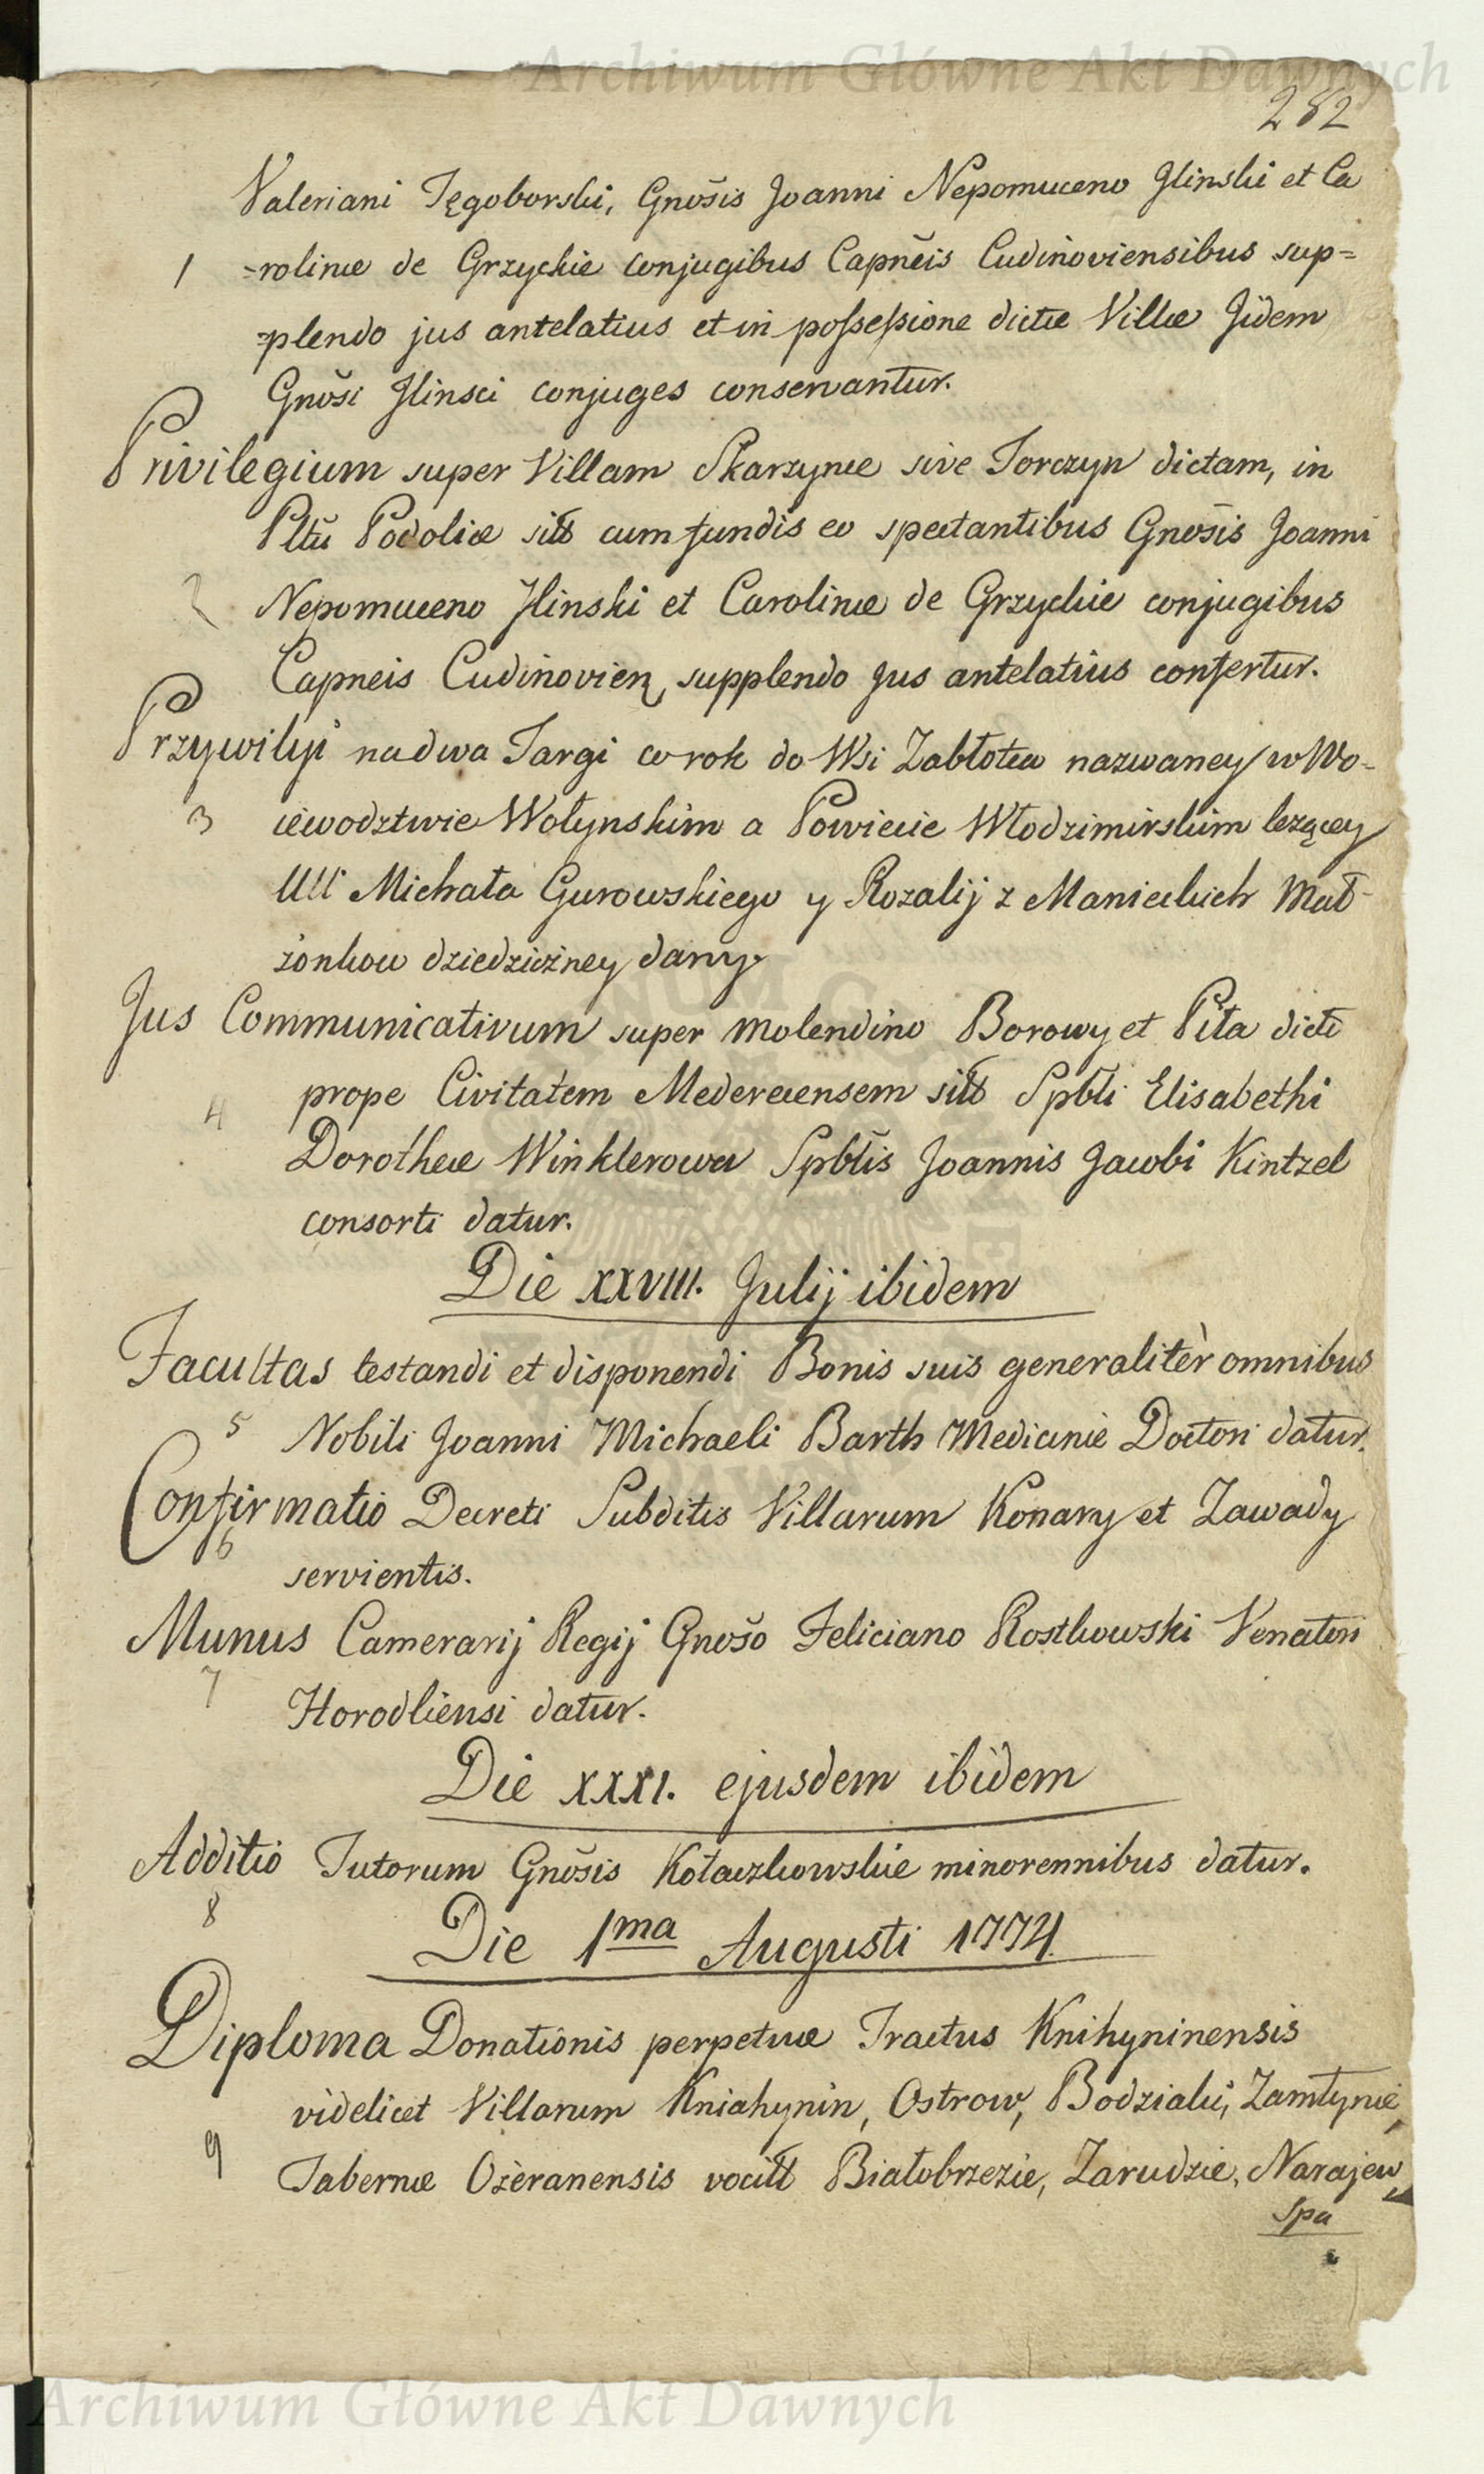 Archiwum Główne Akt Dawnych
282
Valeriani Tęgoborski, Gnōsis Joanni Nepomuceno Jlinski et Ca
1 =rolinæ de Grzyckie conjugibus Capnēis Cudinoviensibus sup=
=plendo jus antelatius et in possessione dictæ Villæ Jidem
Gnōsi Jlinsci conjuges conservantur.
Privilegium super Villam Skarzynce sive Torczyn dictam, in
Pltū Podoliæ sitt cum fundis eo spectantibus Gnōsis Joanni
2 Nepomuceno Jlinski et Carolinæ de Grzyckie conjugibus
Capneis Cudinovien, supplendo Jus antelatius confertur.
Przywiliji na dwa Targi co rok do Wsi Zabłotce nazwaney w Wo-
3 iewodztwie Wołynskim a Powiecie Włodzimirskim lezącey
UU Michała Gurowskiego y Rozalij z Manieckich Mał-
żonkow dziedziczney dany.
Jus Communicativum super Molendino Borowy et Piła dicti
4 prope Civitatem Medereciensem sitt Spbli Elisabethi
Dorotheæ Winklerowa Spblis Joannis Jacobi Kintzel
consorti datur.
Die XXVIII. Julij ibidem
Facultas testandi et disponendi Bonis suis generalitèr omnibus
5 Nobili Joanni Michaeli Barth Medicinie Doctori datur.
Confirmatio Decreti Subditis Villarum Konary et Zawady
6 servientis.
Munus Camerarij Regij Gnošo Feliciano Rostkowski Venatori
7 Horodliensi datur.
Die XXXI. ejusdem ibidem
Additio Tutorum Gnōsis Kołaczkowskie minorennibus datur.
8
Die 1ma Augusti 1774.
Diploma Donationis perpetuæ Tractus Knihyninensis
videlicet Villarum Kniahynin, Ostrow, Bodziaki, Zamłynie,
9 Tabernæ Ozèranensis vocitt Białobrzezie, Zarudzie, Narajew,
Spa
Archiwum Główne Akt Dawnych